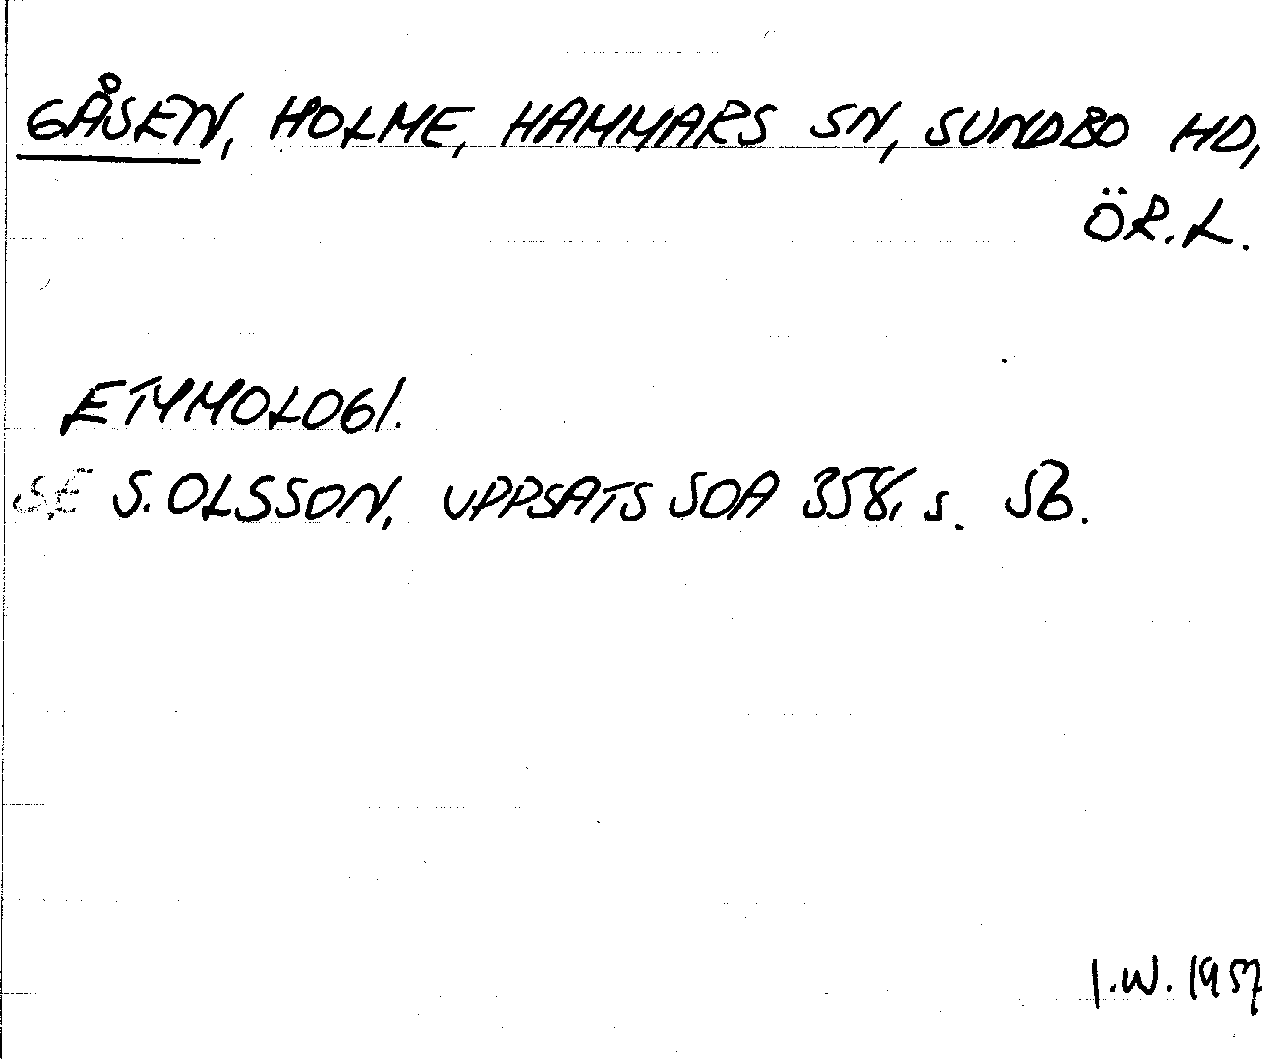 GÅSEN, HOLME, HAMMARS SN, SUNDBO HD,
ÖR.L.
ETYMOLOGI.
SE S. OLSSON, UPPSATS SOA 358, s. 56.
I.W. 1957